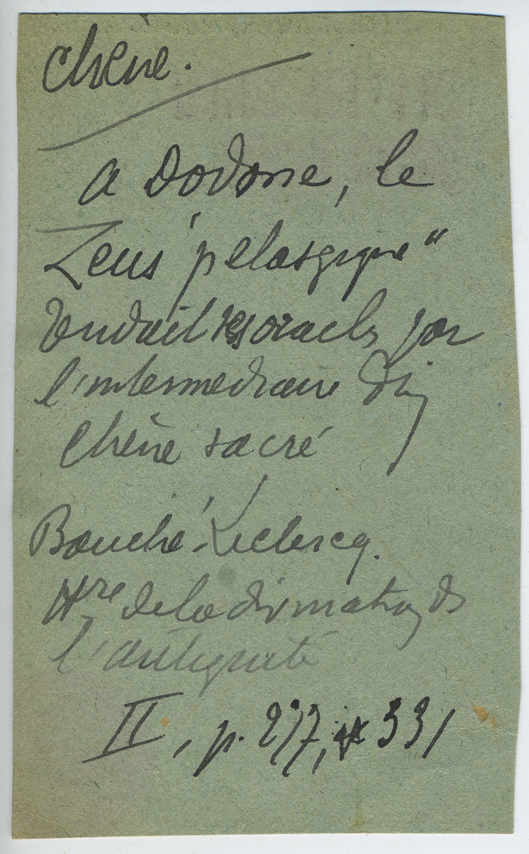 Chêne.
A Dodone, le
Zeus "pelasgique"
rendait ses oracles par
l'intermediaire d'un
Chêne sacré
Bouché-Leclercq.
Hre de la divination ds
l'antiquité
II, p. 277, 331